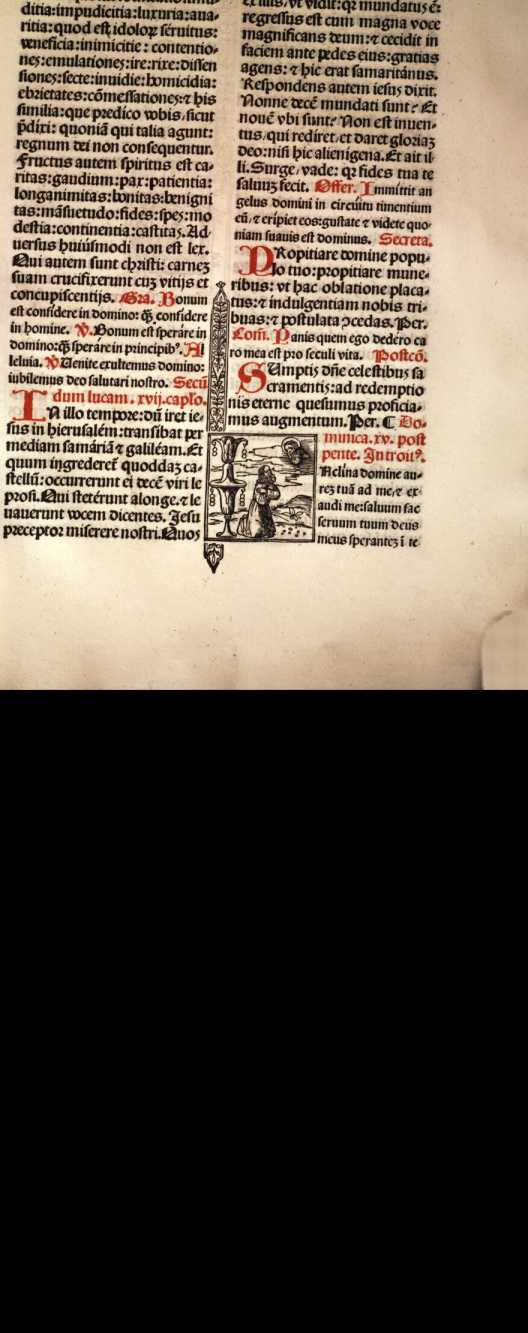 ditia:impudicitia:luxuria:aua-
ritia:quod est idoloꝝ seruitus:
veneficia:inimicitie: contentio-
nes:emulationes:ire:rixe:dissen
siones:secte:inuidie:homicidia:
ebrietates:cõmessationes:⁊ his
similia:que predico vobis, sicut
p̃dixi: quoniã qui talia agunt:
regnum dei non consequentur.
Fructus autem spiritus est ca-
ritas:gaudium:pax:patientia:
longanimitas:bonitas:benigni
tas:mãsuetudo:fides:spes:mo
destia:continentia:castitas. Ad-
uersus huiúsmodi non est lex.
Qui autem sunt christi: carneʒ
suam crucifixerunt cuʒ vitijs et
concupiscentijs. Gra. Bonum
est confidere in domino: q̃ʒ confidere
in homine. ℣. Bonum est sperare in
domino:q̃ʒ sperare in principibꝰ. Al
leluia. ℣ Uenite exultemus domino:
iubilemus deo salutari nostro. Secũ
dum lucam. xvij. capło.
IN illo tempore: dũ iret ie-
sus in hierusalém: transibat per
mediam samáriã ⁊ galiléam. Et
quum ingrederet̃ quoddaʒ ca-
stellũ: occurrerunt ei decẽ viri le
prosi. Qui stetérunt alonge. ⁊ le
uauerunt vocem dicentes. Jesu
preceptor miserere nostri. Quos
regressus est cum magna voce
magnificans deum: ⁊ cecidit in
faciem ante pedes eius: gratias
agens: ⁊ hic erat samaritánus.
Respondens autem iesus dixit.
Nonne decẽ mundati sunt? Et
nouẽ vbi sunt? Non est inuen-
tus, qui rediret, et daret gloriaʒ
deo: nisi hic alienigena. Et ait il-
li. Surge, vade: qꝛ fides tua te
saluuʒ fecit. Offer. Immittit an
gelus domini in circúitu timentium
eũ, ⁊ eripiet eos: gustate ⁊ videte quo-
niam suauis est dominus. Secreta.
PRopitiare domine popu-
lo tuo: propitiare mune-
ribus: vt hac oblatione placa-
tus: ⁊ indulgentiam nobis tri-
buas: ⁊ postulata ꝯcedas. Per.
Com̃. Panis quem ego dedero ca
ro mea est pro seculi vita. Postcõ.
SUmptis dñe celestibus sa
cramentis: ad redemptio
nis eterne quesumus proficia-
mus augmentum. Per. ¶ Do-
minica. xv. post
pente. Introitꝰ.
INclina domine au-
reʒ tuã ad me, ⁊ ex
audi me: saluum fac
seruum tuum deus
meus speranteʒ ĩ te